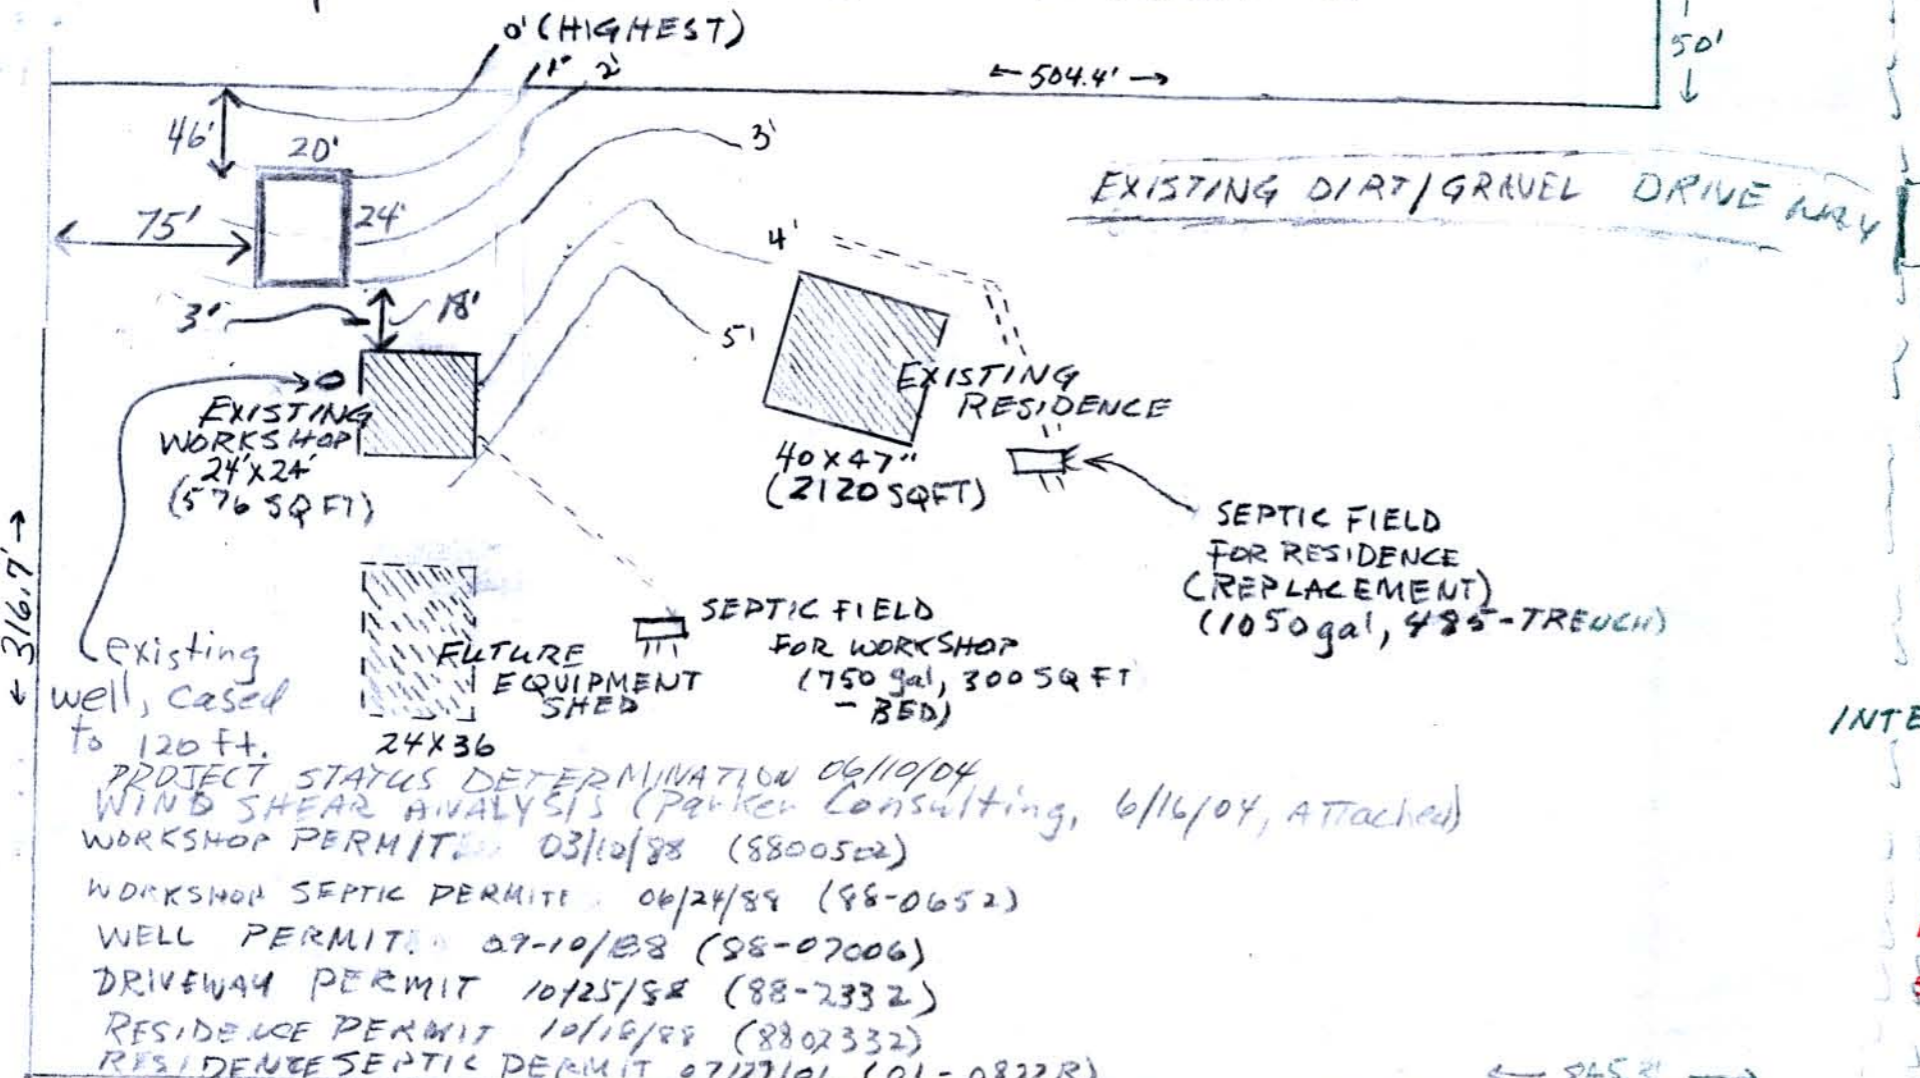 0' (HIGHEST)
1'
2'
← 504.4' →
50'
46'
20'
3'
EXISTING DIRT/GRAVEL DRIVEWAY
75'
24'
4'
3'
18'
5'
EXISTING
WORKSHOP
24'X24'
(576 SQ FT)
EXISTING
RESIDENCE
40X47"
(2120 SQFT)
SEPTIC FIELD
FOR RESIDENCE
(REPLACEMENT)
(1050 gal, 485-TRENCH)
← 316.7' →
existing
well, cased
to 120 ft.
FUTURE
EQUIPMENT
SHED
24X36
SEPTIC FIELD
FOR WORKSHOP
(750 gal, 300 SQ FT
- BED)
INTE
PROJECT STATUS DETERMINATION 06/10/04
WIND SHEAR ANALYSIS (Parker Consulting, 6/16/04, ATTached)
WORKSHOP PERMIT. 03/10/88 (8800502)
WORKSHOP SEPTIC PERMIT 06/24/88 (88-0652)
WELL PERMIT. 09-10/88 (88-07006)
DRIVEWAY PERMIT 10/25/88 (88-2332)
RESIDENCE PERMIT 10/18/88 (8802332)
RESIDENCE SEPTIC PERMIT